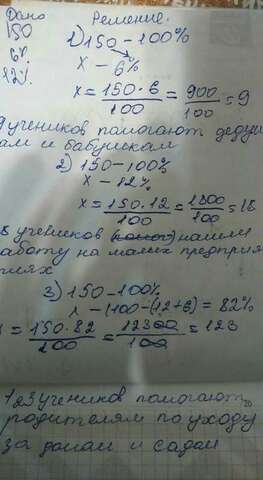 Дано
Решение.
150
6%
12%
1) 150 – 100%
x – 6%
x = 150 · 6 / 100 = 900 / 100 = 9
9 учеников помогают дедуш
кам и бабушкам
2) 150 – 100%
x – 12%
x = 150 · 12 / 100 = 1800 / 100 = 18
учеников нашли
работу на малых предприя
тиях
3) 150 – 100%
x – (100 – (12+6) = 82%
= 150 · 82 / 100 = 12300 / 100 = 123
123 учеников помогают
родителям по уходу
за домом и садом